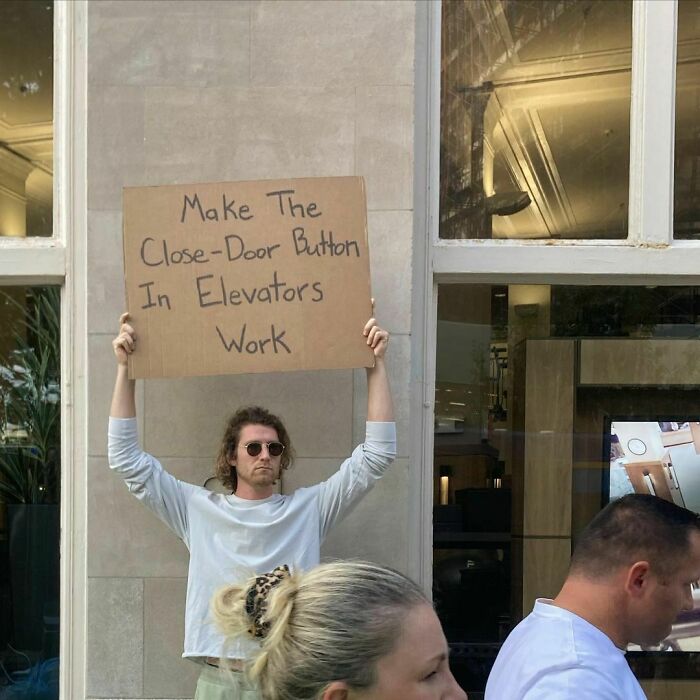 Make The
Close-Door Button
In Elevators
Work